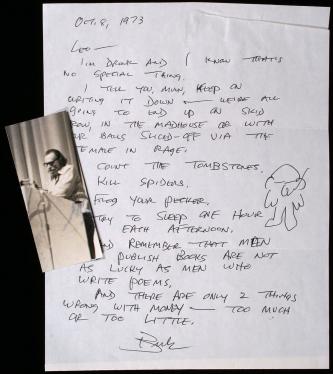 OCT. 8, 1973
LEO —
I'M DRUNK AND I KNOW THAT'S
NO SPECIAL THING.
I TELL YOU, MAN, KEEP ON
WRITING IT DOWN — WE'RE ALL
GOING TO END UP ON SKID
ROW, IN THE MADHOUSE OR WITH
OUR BALLS SLICED-OFF VIA THE
FEMALE IN RAGE.
COUNT THE TOMBSTONES.
KILL SPIDERS.
FLOG YOUR PECKER.
TRY TO SLEEP ONE HOUR
EACH AFTERNOON.
AND REMEMBER THAT MEN
PUBLISH BOOKS ARE NOT
AS LUCKY AS MEN WHO
WRITE POEMS.
AND THERE ARE ONLY 2 THINGS
WRONG WITH MONEY — TOO MUCH
OR TOO LITTLE.
Buk